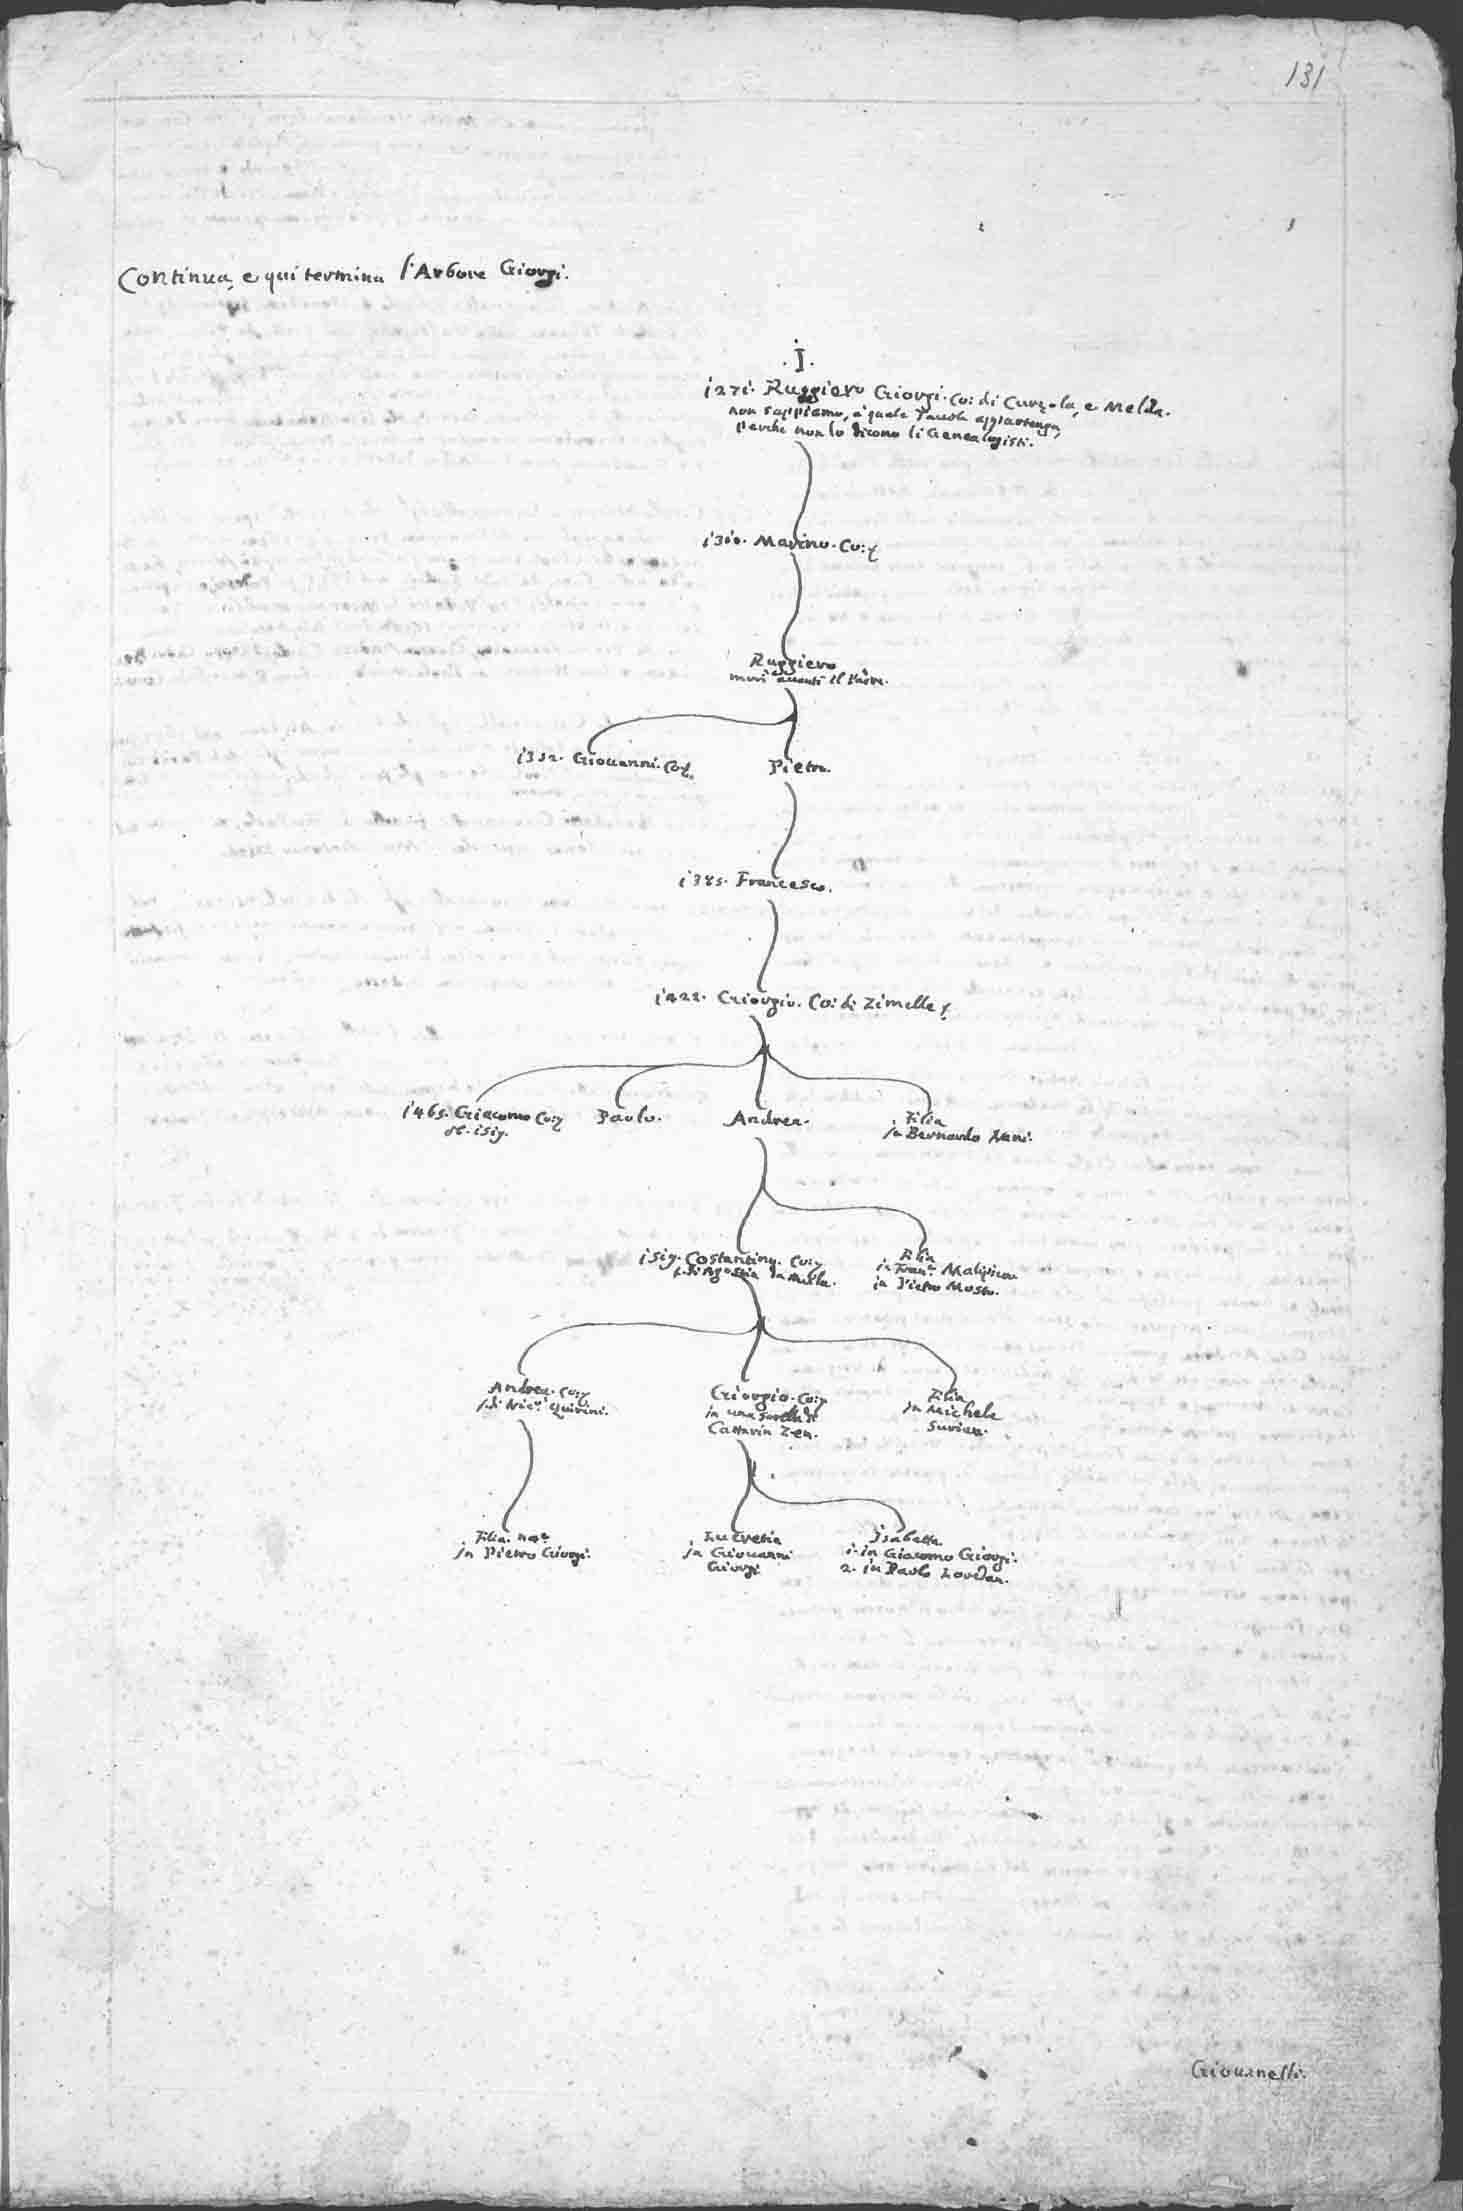 131
Continua, e qui termina l'Arbore Giorgi.
.J.
1271. Ruggiero Giorgi. Co: di Curzola, e Melda.
non sappiamo, à quale Tavola appartenga,
perche non lo dicono li Genealogisti.
1310. Marino. Co:
Ruggiero
morì avanti il Padre.
1352. Giovanni. Co:
Pietro.
1385. Francesco.
1422. Giorgio. Co: di Zimelle
1465. Giacomo Co:
Paolo.
Andrea.
Filia
in Bernardo Nani.
ob. 1519.
1519. Costantino. Co:
Filia
in Fran.º Malipiero
in Pietro Mosto.
da Mula.
Andrea. Co:
di Nic.º Quirini.
Giorgio. Co:
in una sorella di
Cattarin Zen.
Filia
in Michele
Surian.
Filia nat.
in Pietro Giorgi.
Lucretia
in Giovanni
Giorgi
Isabetta
1. in Giacomo Giorgi.
2. in Paolo Loredan.
Giovanelli.